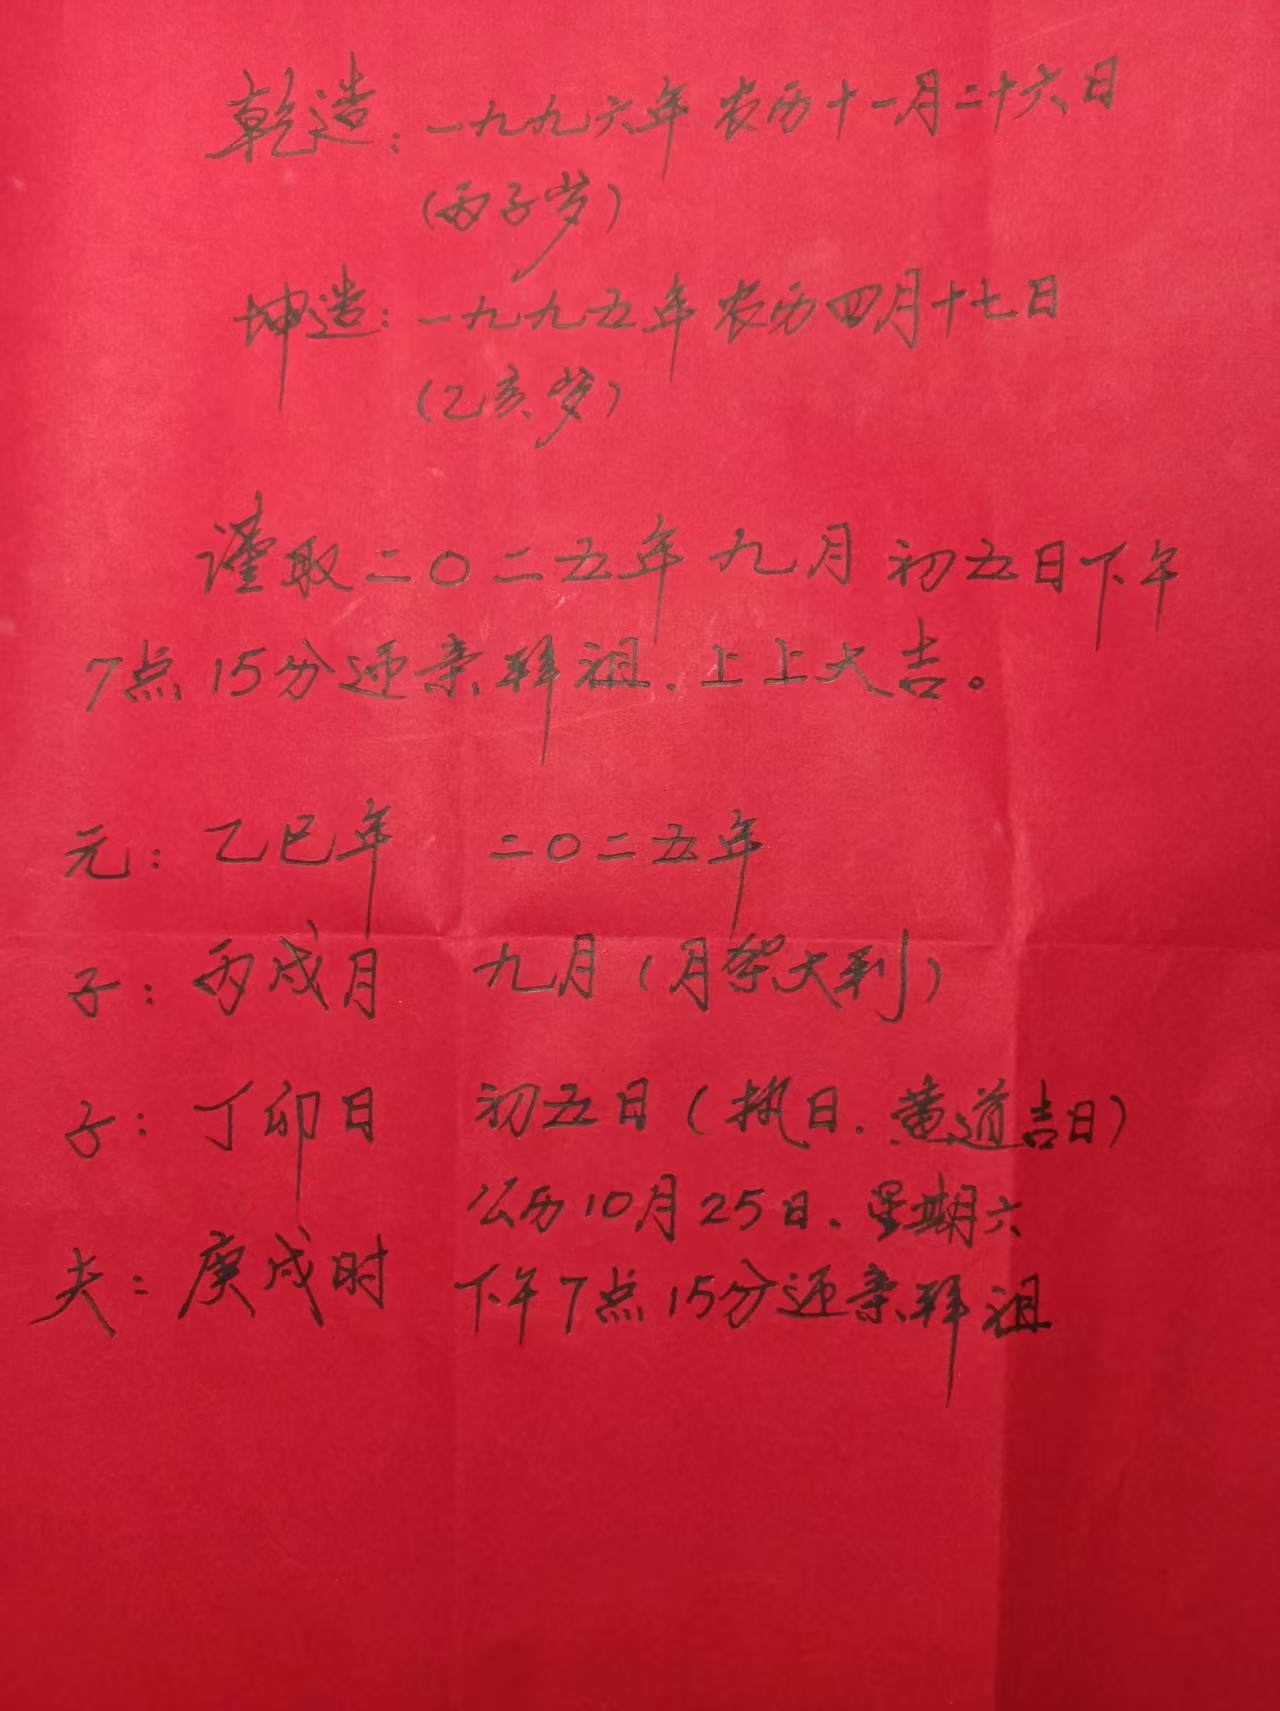 乾造：一九九六年农历十一月二十六日
（丙子岁）
坤造：一九九五年农历四月十七日
（乙亥岁）
谨取二〇二五年九月初五日下午
7点15分迎亲拜祖.上上大吉。
元：乙巳年 二〇二五年
子：丙戌月 九月（月架大利）
子：丁卯日 初五日（执日.黄道吉日）
公历10月25日.星期六
夫：庚戌时 下午7点15分迎亲拜祖